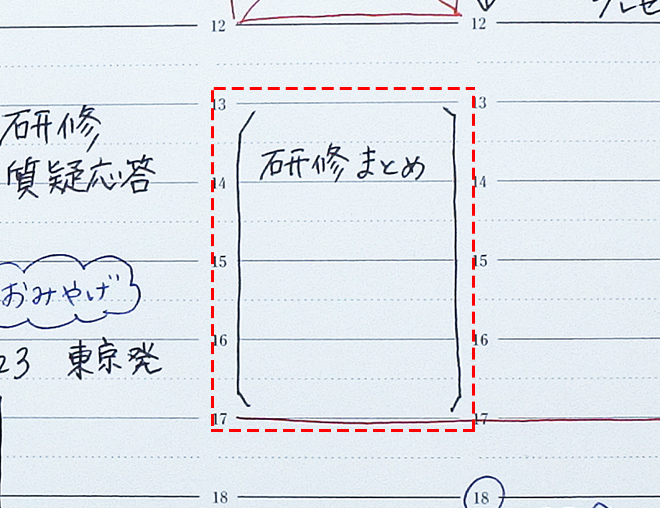 12
12
プレゼ
13
13
研修
研修まとめ
質疑応答
14
14
15
15
おみやげ
16
16
23 東京発
17
17
18
18